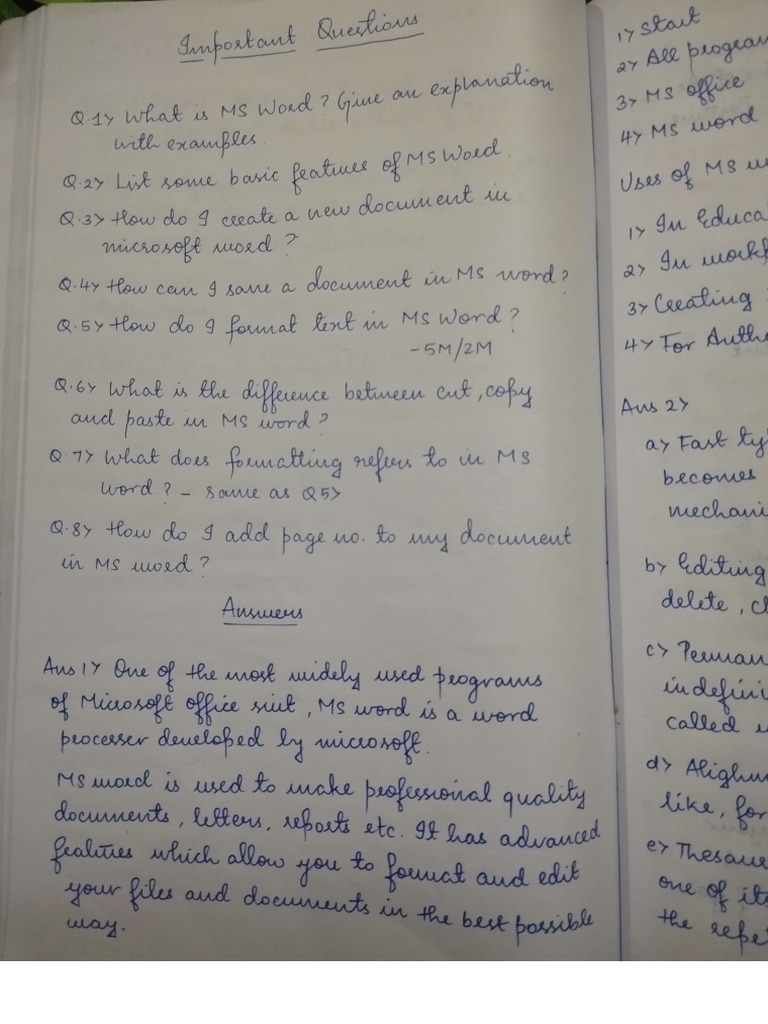 Important Questions
Q.1> What is MS Word? Give an explanation
with examples.
Q.2> List some basic features of MS Word.
Q.3> How do I create a new document in
microsoft word?
Q.4> How can I save a document in MS word?
Q.5> How do I format text in MS Word?
-5M/2M
Q.6> What is the difference between cut, copy
and paste in MS word?
Q.7> What does formatting refers to in MS
word? - same as Q5>
Q.8> How do I add page no. to my document
in MS word?
Answers
Ans 1> One of the most widely used programs
of Microsoft office siut, MS word is a word
processer developed by microsoft.
MS word is used to make professional quality
documents, letters, reports etc. It has advanced
fealities which allow you to format and edit
your files and documents in the best possible
way.
1> Start
2> All program
3> MS office
4> MS word
Uses of MS w
1> In Educa
2> In workp
3> Creating
4> For Authe
Ans 2>
a> Fast ty
becomes
mechani
b> Editing
delete, c
c> Perman
indefini
called
d> Alighm
like, for
e> Thesau
one of its
the repe